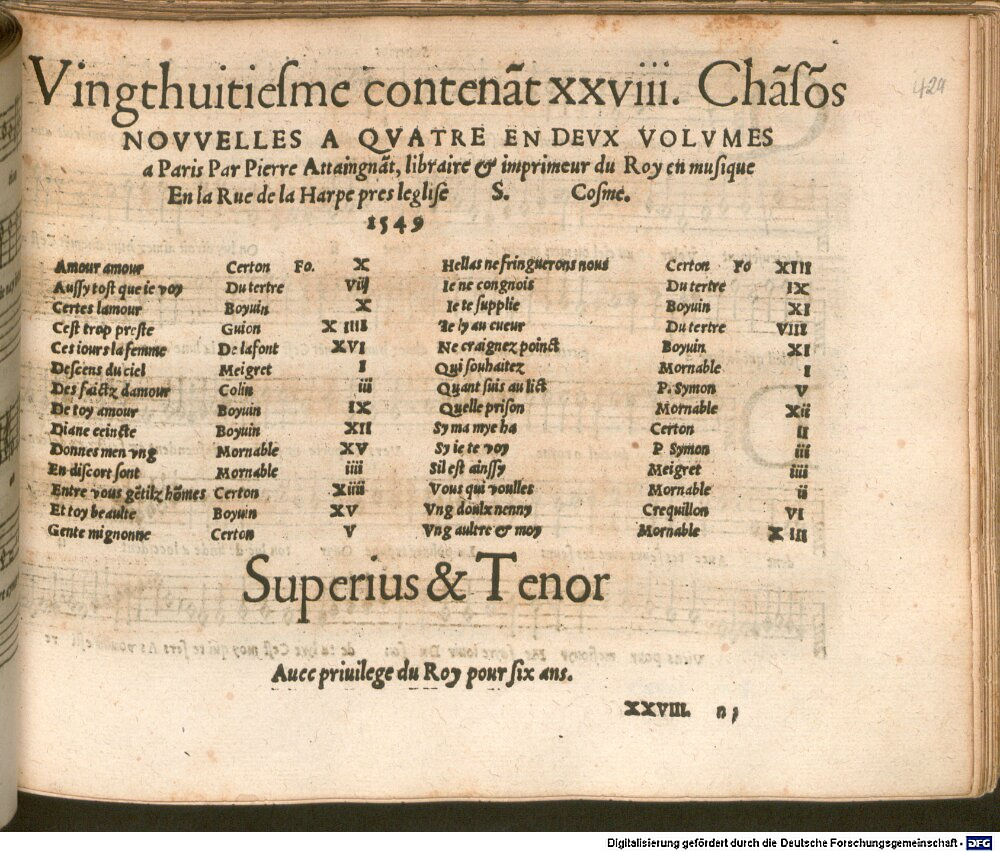 Vingthuitiesme contenãt xxviii. Chãsõs
NOVVELLES A QVATRE EN DEVX VOLVMES
a Paris Par Pierre Attaingnãt, libraire & imprimeur du Roy en musique
En la Rue de la Harpe pres leglise S. Cosme.
1549
424
Amour amour Certon Fo. X
Aussy tost que ie voy Dutertre Viij
Certes lamour Boyuin X
Cest trop preste Guion X IIII
Ces iours la femme De lafont XVI
Descens du ciel Meigret I
Des faictz damour Colin iii
De toy amour Boyuin IX
Diane ceincte Boyuin XII
Donnes men vng Mornable XV
En discort sont Mornable iiii
Entre vous gẽtilz hõmes Certon Xiiii
Et toy beaulte Boyuin XV
Gente mignonne Certon V
Hellas ne fringuerons nous Certon Fo XIII
Ie ne congnois Dutertre IX
Ie te supplie Boyuin XI
Ie ly au cueur Dutertre VIII
Ne craignez poinct Boyuin XI
Qui souhaitez Mornable I
Quant suis au lict P. Symon V
Quelle prison Mornable Xii
Sy ma mye ha Certon II
Sy ie te voy P Symon iii
Sil est ainssy Meigret iiii
Vous qui voulles Mornable ii
Vng doulx nenny Crequillon VI
Vng aultre & moy Mornable X III
Superius & Tenor
Auec priuilege du Roy pour six ans.
XXVIII. n j
Digitalisierung gefördert durch die Deutsche Forschungsgemeinschaft - DFG